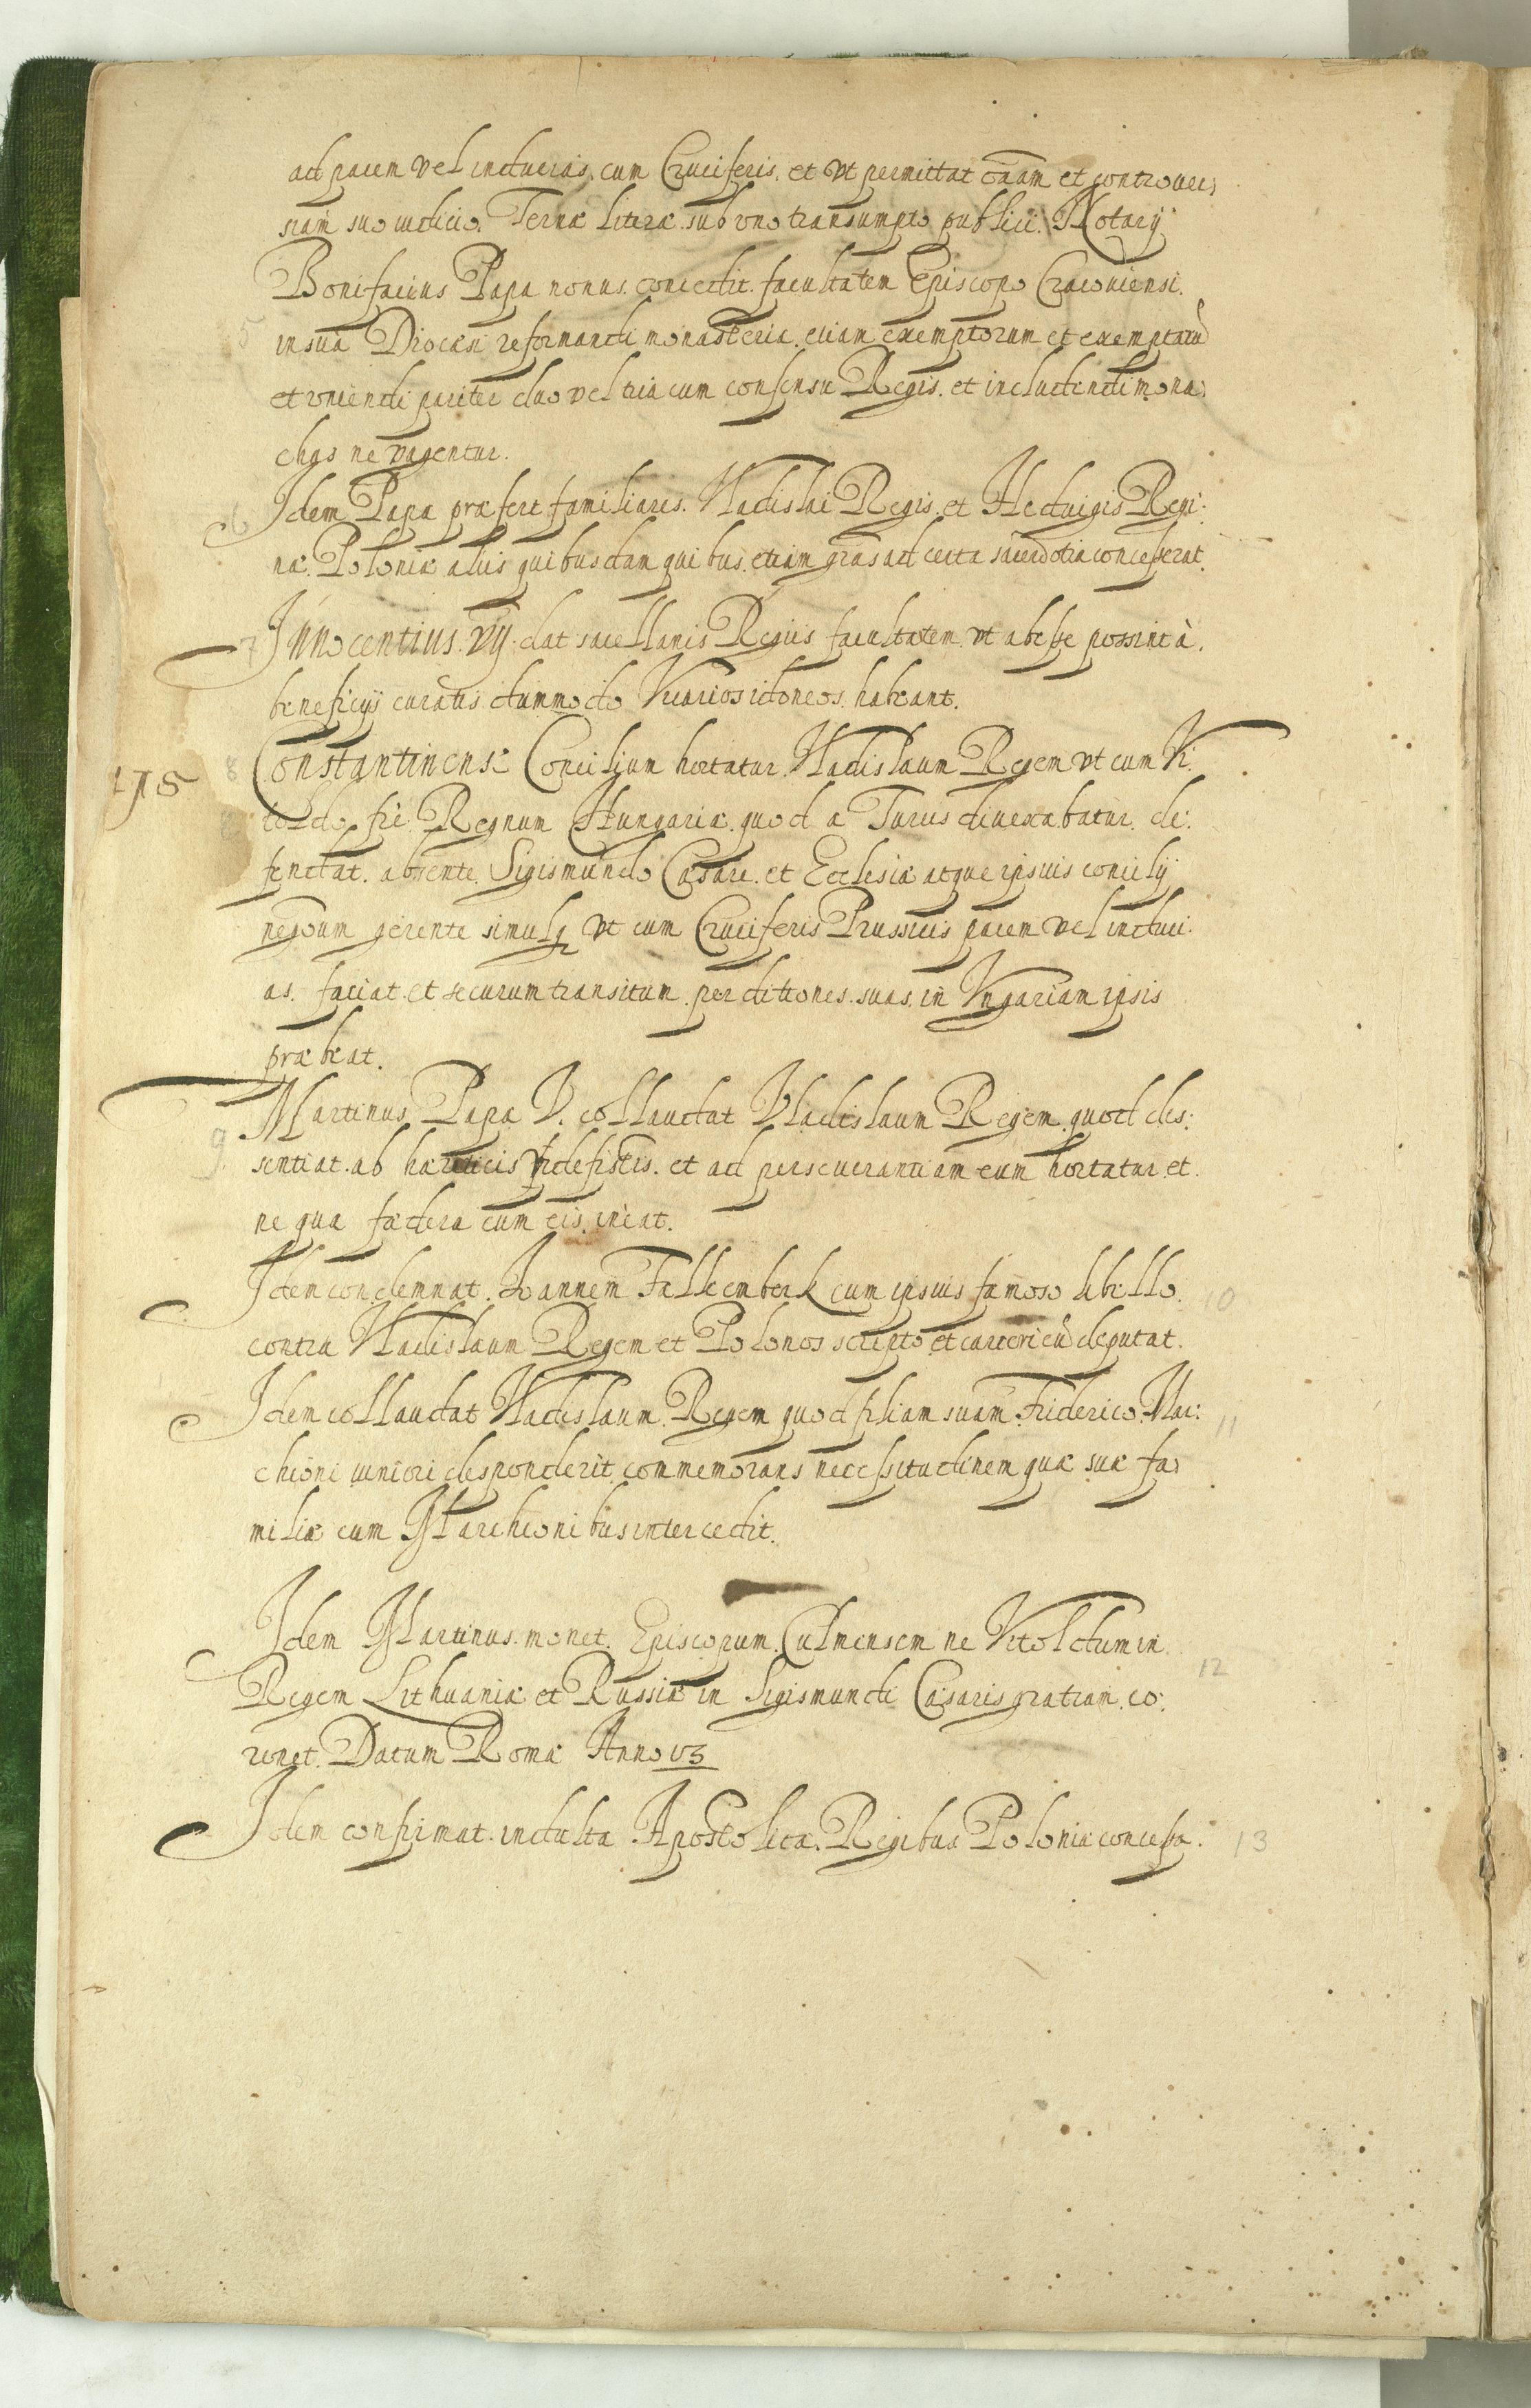 ad pacem vel inducias, cum Cruciferis. et vt permittat cãam et controuer,
siam suo iudicio. Ternæ literæ sub vno transumpto publici. Notarij
5 Bonifacius Papa nonus. concedit. facultatem Episcopo Cracouiensi.
in sua Diocæsi reformandi monasteria. etiam exemptorum et exemptarũ
et vniendi pariter duo vel tria cum consensu Regis. et includendi mona,
chos ne vagentur.
6 Idem Papa præfert familiares. Vladislai Regis. et Heduigis Regi:
næ. Poloniæ aliis quibusdam quibus. etiam grãs ad certa sacerdotia concesserat.
7 Innocentius. VIJ. dat sacellanis Regiis facultatem. vt abesse possint à.
beneficijs curatis. dummodo Vicarios idoneos. habeant.
8 Constantinense Concilium hortatur. Vladislaum Regem vt cum Vi:
175
toldo frẽ. Regnum Hungariæ. quod a Turcis diuexabatur. de:
fendat. absente. Sigismundo Cæsare. et Ecclesiæ atque ipsius concilij
negõum gerente simulq vt cum Cruciferis Prussicis pacem vel induci:
as. faciat. et securum transitum. per ditiones. suas. in Vngariam ipsis
præbeat.
9 Martinus Papa V. collaudat Vladislaum Regem. quod dis:
sentiat. ab hæreticis Viclefistis. et ad perseuerantiam eum hortatur. et.
ne qua fædera cum eis. ineat.
Idem condemnat. Joannem Falkemberk cum ipsius famoso libello. 10
contra Vladislaum Regem et Polonos scripto et carceri eũ deputat.
Idem collaudat Vladislaum. Regem quod filiam suam. Friderico. Mar: 11
chioni iuniori desponderit. commemorans necessitudinem quæ suæ fa,
miliæ cum Marchionibus intercedit.
Idem Martinus. monet. Episcopum. Culmensem ne Vitoldum in.
Regem Lithuaniæ et Russiæ in Sigismundi Cæsaris gratiam. co: 12
ronet. Datum Romæ Anno 13
Idem confirmat. indulta Apostolica. Regibus Poloniæ concessa. 13